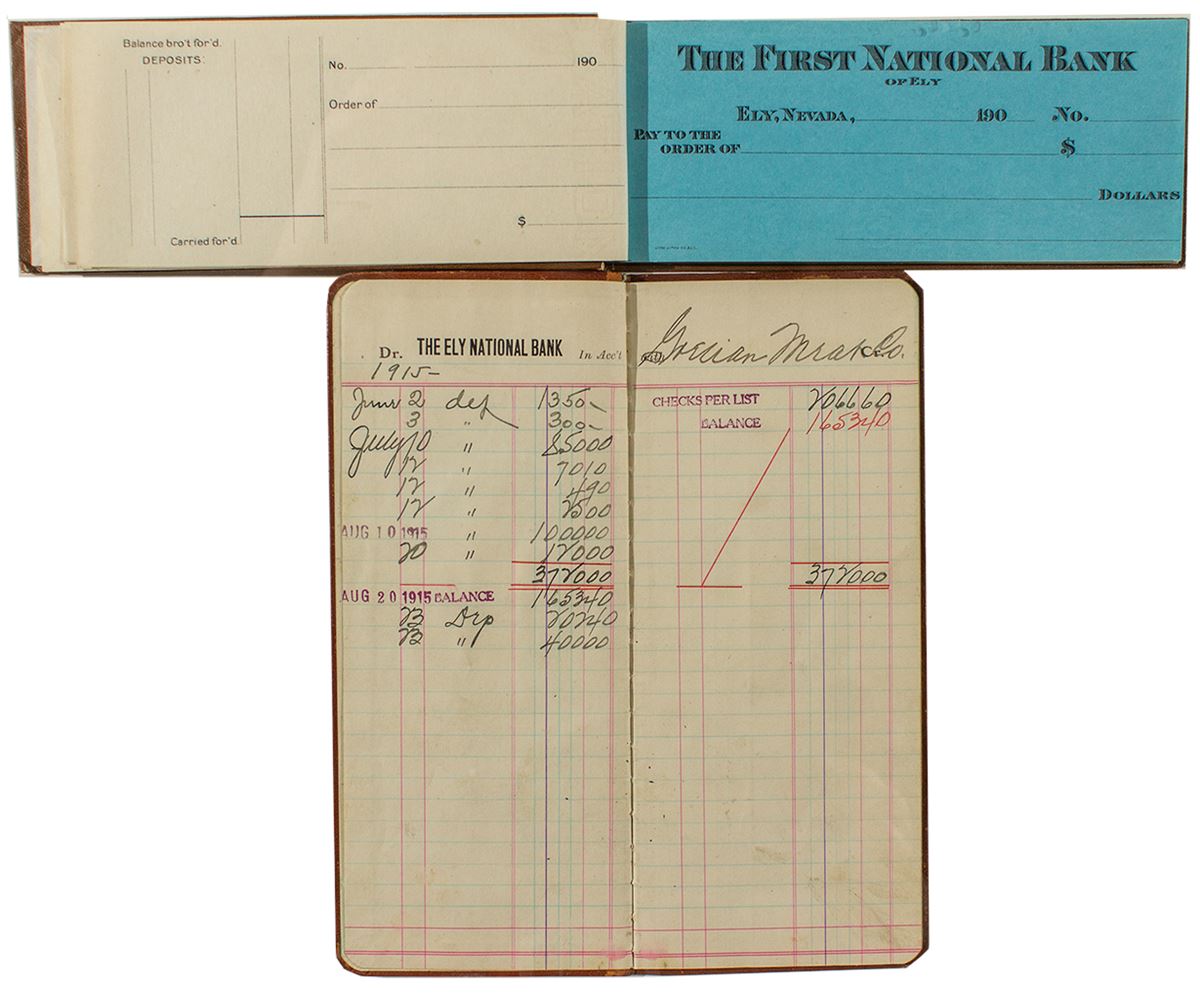 Balance bro't for'd.
DEPOSITS:
No. 190
Order of
$
Carried for'd.
THE FIRST NATIONAL BANK
OF ELY
ELY, NEVADA, 190 No.
PAY TO THE
ORDER OF $
DOLLARS
Dr. THE ELY NATIONAL BANK In Acc't Co.
1915-
June 2 dep 1350-
3 " 300-
July 10 " 85000
12 " 7010
12 " 490
12 " 2500
AUG 10 1915 " 100000
20 " 12000
372000
AUG 20 1915 BALANCE 165340
23 Dep 20240
23 " 40000
CHECKS PER LIST 206660
BALANCE 165340
372000